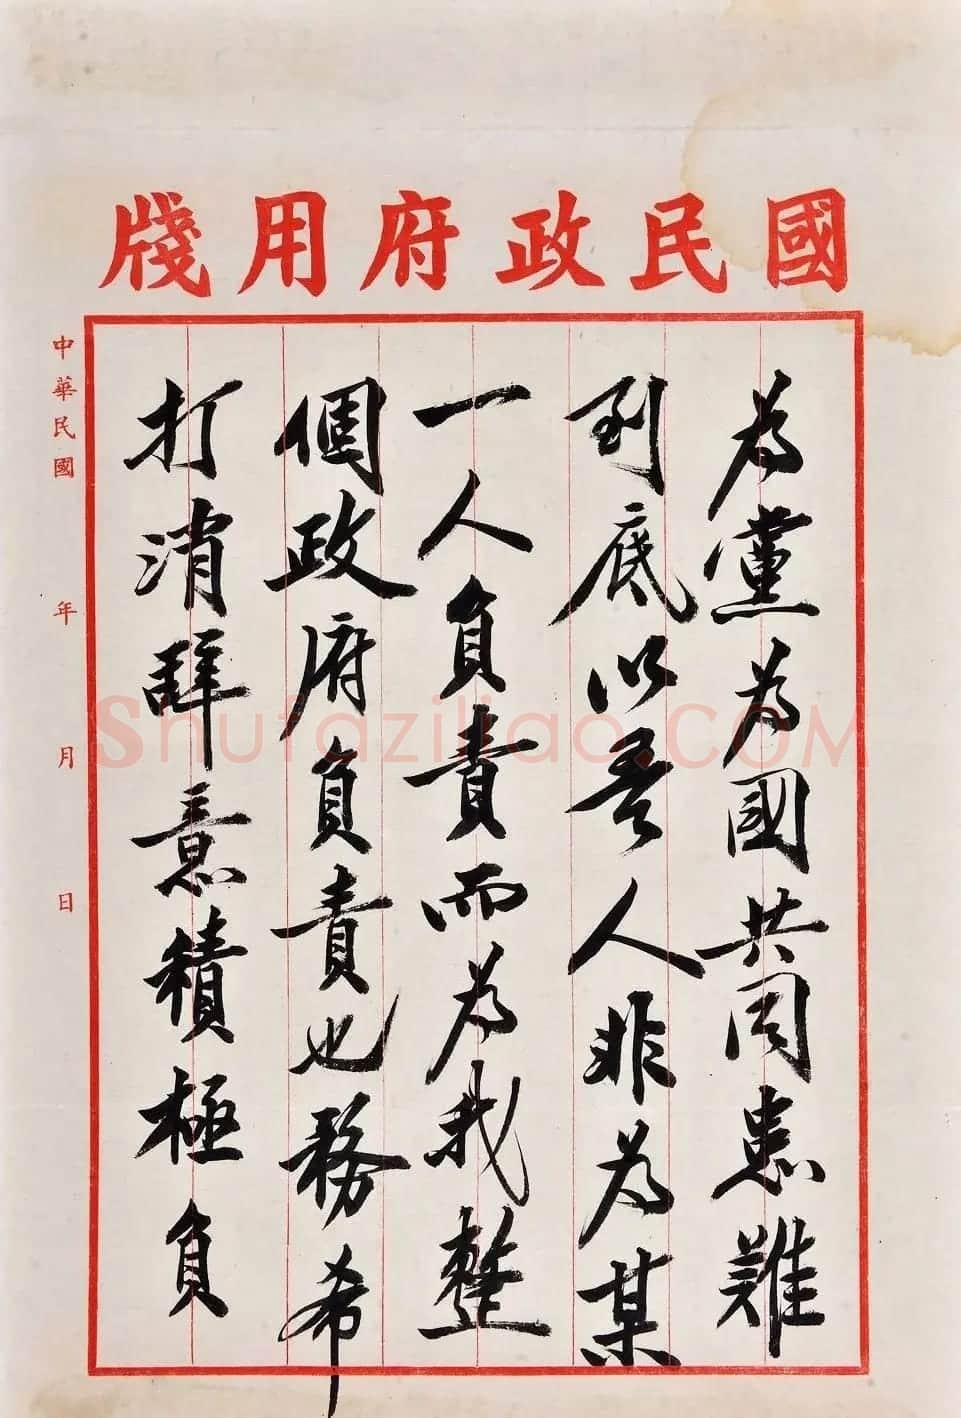 國民政府用牋
為黨為國共同患難
到底以吾人非為某
一人負責而為我整
個政府負責也務希
打消辭意積極負
中華民國 年 月 日
Shufaziliao.COM